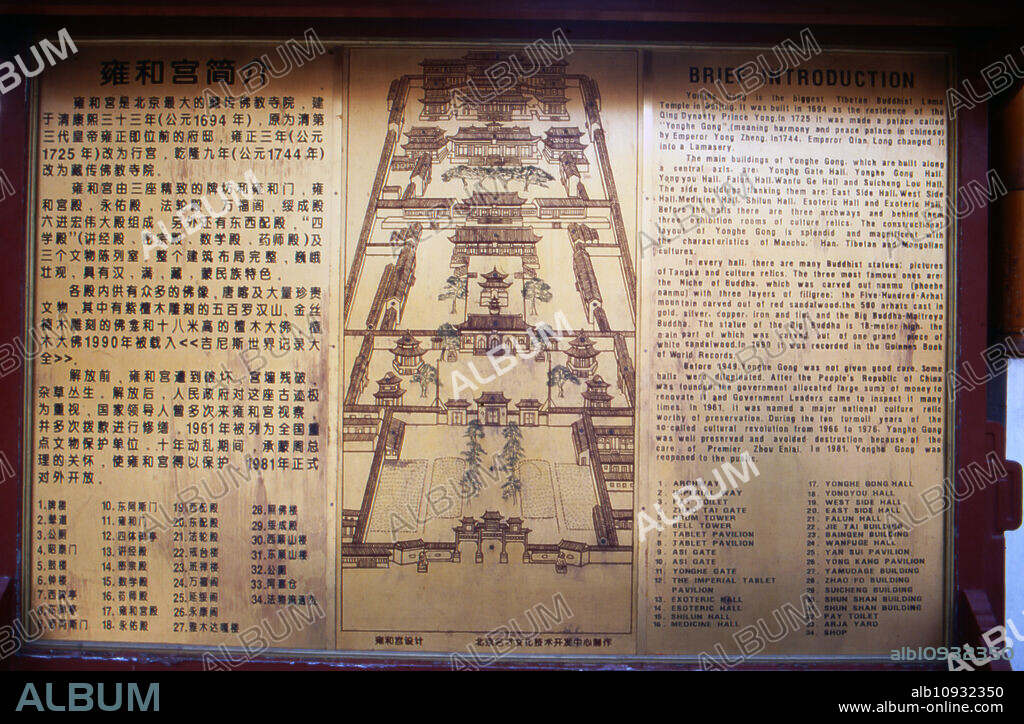 雍和宫简介
雍和宫是北京最大的藏传佛教寺院，建
于清康熙三十三年(公元1694年)，原为清第
三代皇帝雍正即位前的府邸，雍正三年(公元
1725年)改为行宫，乾隆九年(公元1744年)
改为藏传佛教寺院。
雍和宫由三座精致的牌坊和雍和门，雍
和宫殿，永佑殿，法轮殿，万福阁，绥成殿
六进宏伟大殿组成，另还有东西配殿，“四
学殿”(讲经殿，密宗殿，数学殿，药师殿)及
三个文物陈列室，整个建筑布局完整，巍峨
壮观，具有汉，满，藏，蒙民族特色。
各殿内供有众多的佛像，唐喀及大量珍贵
文物，其中有紫檀木雕刻的五百罗汉山，金丝
楠木雕刻的佛龛和十八米高的檀木大佛，檀
木大佛1990年被载入<<吉尼斯世界记录大
全>>.
解放前，雍和宫遭到破坏，宫墙残破，
杂草丛生。解放后，人民政府对这座古迹极
为重视，国家领导人曾多次来雍和宫视察，
并多次拨款进行修缮，1961年被列为全国重
点文物保护单位。十年动乱期间，承蒙周总
理的关怀，使雍和宫得以保护。1981年正式
对外开放。
1.牌楼 10.东阿斯门 19.西配殿 28.照佛楼
2.辇道 11.雍和门 20.东配殿 29.绥成殿
3.公厕 12.四体钟亭 21.法轮殿 30.西顺山楼
4.昭泰门 13.讲经殿 22.戒台楼 31.东顺山楼
5.鼓楼 14.密宗殿 23.班禅楼 32.公厕
6.钟楼 15.数学殿 24.万福阁 33.阿嘉仓
7.西碑亭 16.药师殿 25.延绥阁 34.法物流通处
17.雍和宫殿 26.永康阁
阿斯门 18.永佑殿 27.雅木达嘎楼
雍和宫设计 北京名术文化技术开发中心制作
BRIEF INTRODUCTION
Yonghe Gong is the biggest Tibetan Buddhist Lama
Temple in Beijing. It was built in 1694 as the residence of the
Qing Dynasty Prince Yong. In 1725 it was made a palace called
"Yonghe Gong" (meaning harmony and peace palace in chinese)
by Emperor Yong Zheng. In1744, Emperor Qian Long changed it
into a Lamasery.
The main buildings of Yonghe Gong, which are built along
a central axis, are: Yonghe Gate Hall, Yonghe Gong Hall,
Yongyou Hall, Falun Hall, Wanfu Ge Hall and Suicheng Lou Hall.
The side buildings flanking them are: East Side Hall, West Side
Hall, Medicine Hall, Shilun Hall, Esoteric Hall and Exoteric Hall.
Before them there are three archways and behind are
three exhibition rooms of culture relics. The construction
layout of Yonghe Gong is splendid and magnificent with
the characteristics of Manchu, Han, Tibetan and Mongolian
cultures.
In every hall, there are many Buddhist statues, pictures
of Tangka and culture relics. The three most famous ones are:
the Niche of Buddha, which was carved out nanmu (phoebe
nanmu) with three layers of fillgree; the Five-Hundred-Arhat
mountain carved out of red sandalwood, the 500 arhats cast in
gold, silver, copper, iron and tin; and the Big Buddha-Maitreya
Buddha. The statue of the Big Buddha is 18-meter high, the
main part of which was built out of one grand piece of
white sandlewood. In 1990 it was recorded in the Guinness Book
of World Records.
Before 1949, Yonghe Gong was not given good care. Some
halls were dilapidated. After the People's Republic of China
was founded, the government allocated large sums of money to
renovate it and Government Leaders came to inspect it many
times. In 1961, it was named a major national culture relic
worthy of preservation. During the ten turmoil years of the
so-called cultural revolution from 1966 to 1976, Yonghe Gong
was well preserved and avoided destruction because of the
care of Premier Zhou Enlai. In 1981, Yonghe Gong was
reopened to the public.
1. ARCHWAY
2. IMPERIAL WAY
3. PAY TOILET
4. ZHAO TAI GATE
5. DRUM TOWER
6. BELL TOWER
7. TABLET PAVILION
8. TABLET PAVILION
9. ASI GATE
10. ASI GATE
11. YONGHE GATE
12. THE IMPERIAL TABLET
PAVILION
13. EXOTERIC HALL
14. ESOTERIC HALL
15. SHILUN HALL
16. MEDICINE HALL
17. YONGHE GONG HALL
18. YONGYOU HALL
19. WEST SIDE HALL
20. EAST SIDE HALL
21. FALUN HALL
22. JIE TAI BUILDING
23. BAINGEN BUILDING
24. WANFUGE HALL
25. YAN SUI PAVILION
26. YONG KANG PAVILION
27. YAMUDAGE BUILDING
28. ZHAO FO BUILDING
29. SUICHENG BUILDING
30. SHUN SHAN BUILDING
31. SHUN SHAN BUILDING
32. PAY TOILET
33. ARJA YARD
34. SHOP
ALBUM
alb10932350
ALBUM
alb10932350
www.album-online.com